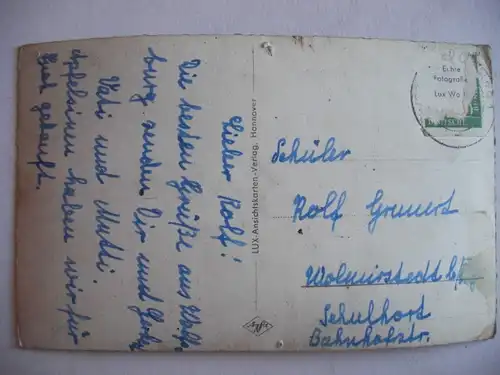 Lieber Rolf!
Die besten Grüße aus Wolfs-
burg senden Dir und
Vati und Mutti.
Apfelsinen haben wir für
Euch gekauft.
LUX-Ansichtskarten-Verlag, Hannover
Agfa
Echte
Fotografie
Lux
Schüler
Rolf Grunert
Wolmirstedt
Schulhort
Bahnhofstr.